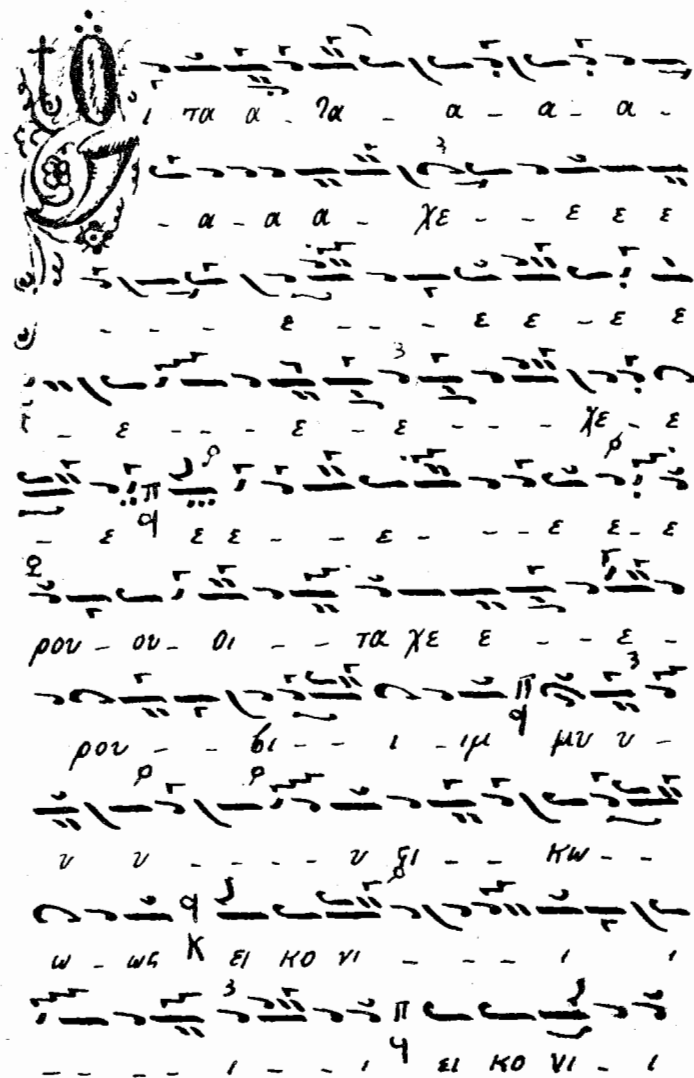 Οι τα α - τα - α - α - α -
- α - α α - χε - - ε ε ε
- - - - ε - - - ε ε - ε ε
- ε - - - ε - ε - - - χε - ε
- ε ε ε - - ε - - - ε ε - ε
ρου - ου - οι - - τα χε ε - - ε -
ρου - - βι - - ι - ιμ μυ υ -
υ υ - - - - - υ ςι - - κω - -
ω - ως ει κο νι - - - - ι ι
- - - - - ι - - ι ει κο νι - ι